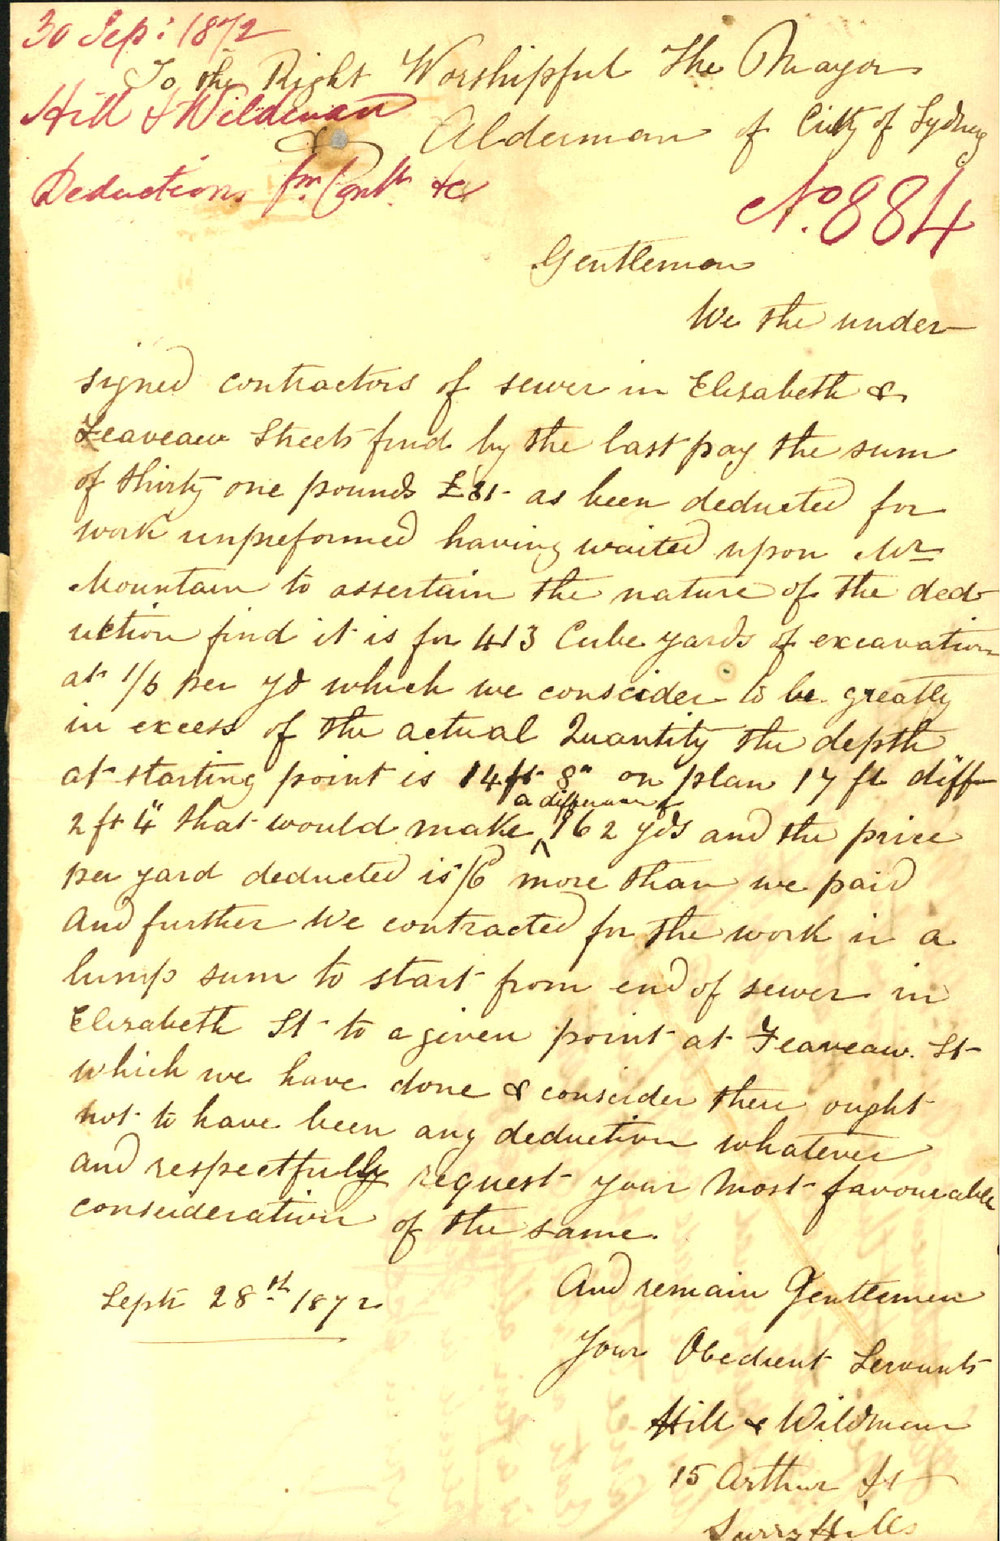 30 Sep: 1872
To the Right Worshipful The Mayor
Hill & Wildman
Alderman of City of Sydney
Deductions fm. Contt. &c
No. 884
Gentlemen
We the under
signed contractors of sewer in Elizabeth &
Feaveaux Streets find by the last pay the sum
of thirty one pounds £31- as been deducted for
work unpreformed having waited upon Mr
Mountain to assertain the nature of the ded-
uction find it is for 413 Cube yards of excavation
at 1/6 per yd which we conscider to be greatly
in excess of the actual Quantity the depth
at starting point is 14 ft 8" on plan 17 ft diff
a difference of
2 ft 4" that would make 162 yds and the price
per yard deducted is /6 more than we paid
and further We contracted for the work in a
lump sum to start from end of sewer in
Elizabeth St to a given point at Feaveaux St
which we have done & conscider there ought
not to have been any deduction whatever
and respectfully request your most favourable
consideration of the same.
And remain Gentlemen
Septr 28th 1872
Your Obedient Servants
Hill & Wildman
15 Arthur St
Surry Hills